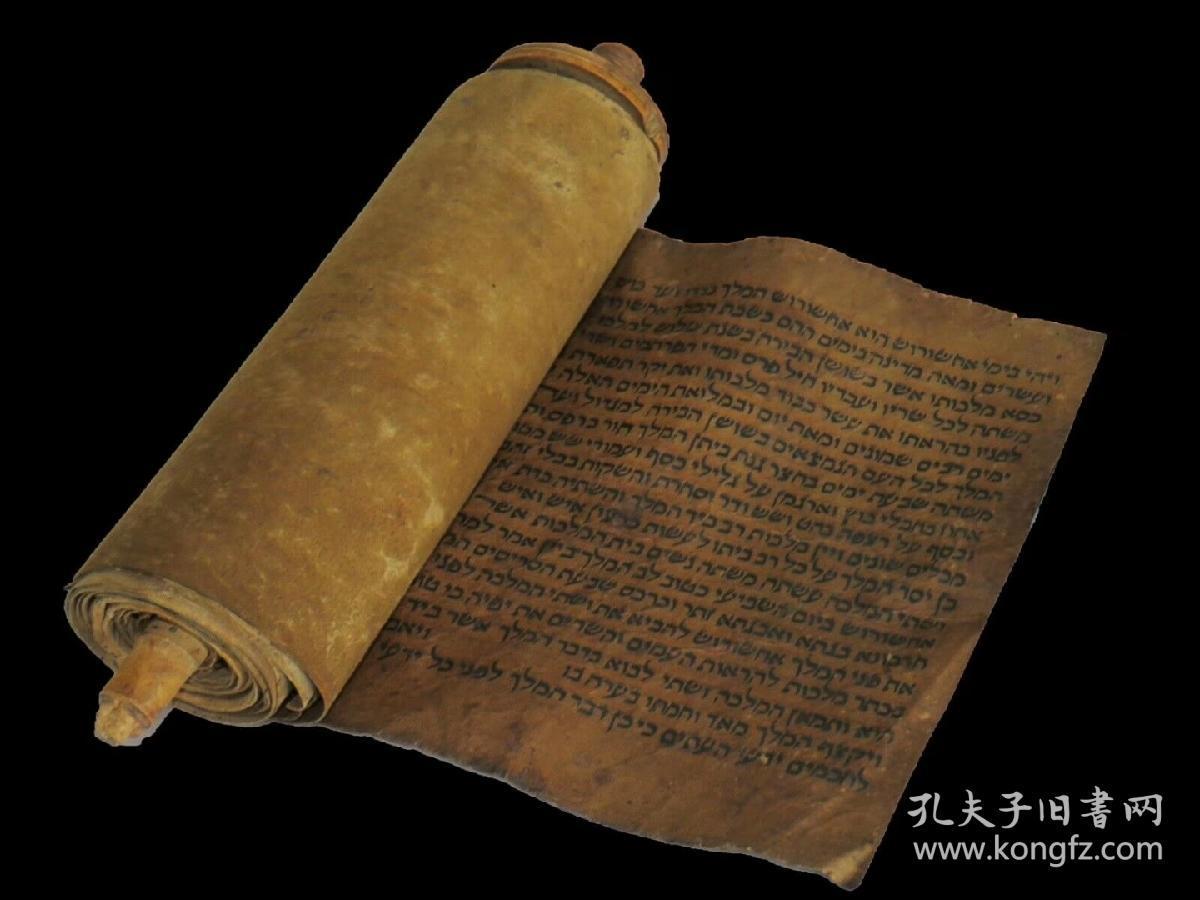 ויהי בימי אחשורוש הוא אחשורוש המלך מהדו ועד כוש
ועשרים ומאה מדינה בימים ההם כשבת המלך
כסא מלכותו אשר בשושן הבירה בשנת שלוש
משתה לכל שריו ועבדיו חיל פרס ומדי הפרתמים
לפניו בהראתו את עשר כבוד מלכותו ואת יקר תפארת
ימים רבים שמונים ומאת יום ובמלואת הימים האלה
המלך לכל העם הנמצאים בשושן הבירה למגדול ועד
משתה שבעת ימים בחצר גנת ביתן המלך חור כרפס
אחוז בחבלי בוץ וארגמן על גלילי כסף ועמודי שש
וכסף על רצפת בהט ושש ודר וסחרת והשקות בכלי
מכלים שונים ויין מלכות רב כיד המלך והשתיה כדת
כן יסד המלך על כל רב ביתו לעשות כרצון איש ואיש
ושתי המלכה עשתה משתה נשים בית המלכות אשר
אחשורוש ביום השביעי כטוב לב המלך ביין אמר
חרבונא בגתא ואבגתא זתר וכרכס שבעת הסריסים
את פני המלך אחשורוש להביא את ושתי המלכה לפני
בכתר מלכות להראות העמים והשרים את יפיה כי
היא ותמאן המלכה ושתי לבוא בדבר המלך אשר ביד
ויקצף המלך מאד וחמתו בערה בו
לחכמים ידעי העתים כי כן דבר המלך לפני כל ידעי
孔夫子旧書网
www.kongfz.com